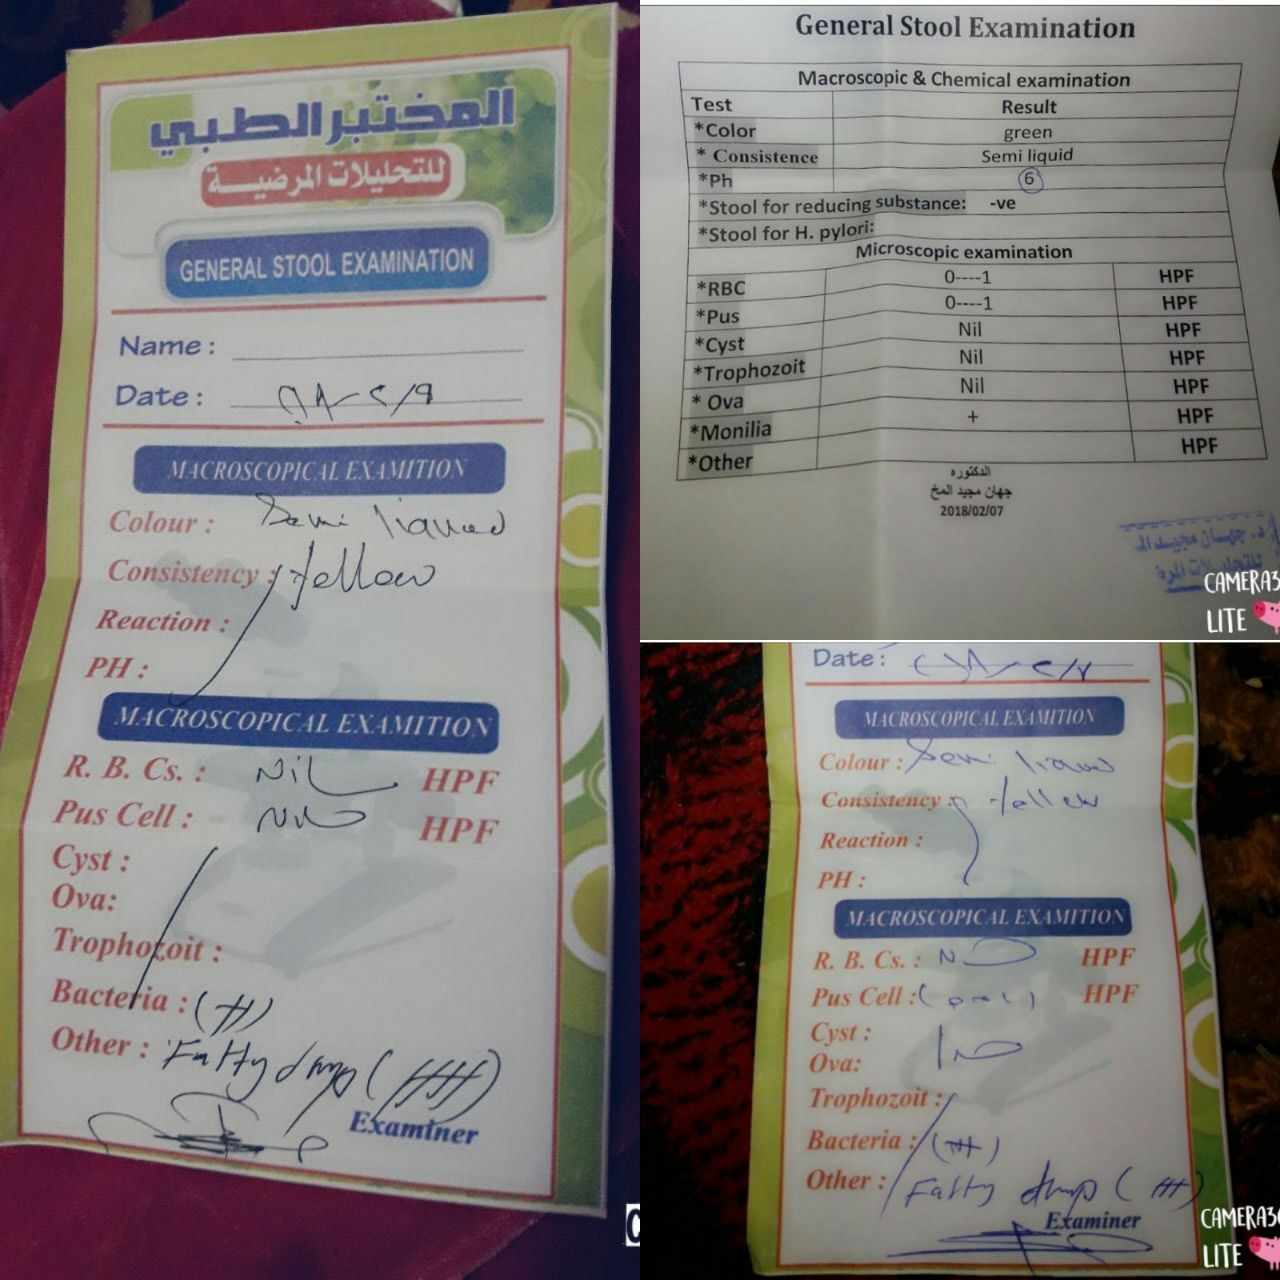 المختبر الطبي
للتحليلات المرضية
GENERAL STOOL EXAMINATION
Name :
Date :
MACROSCOPICAL EXAMITION
Colour : Semi
Consistency : Yellow
Reaction :
PH :
MACROSCOPICAL EXAMITION
R. B. Cs. : Nil HPF
Pus Cell : HPF
Cyst :
Ova:
Trophozoit :
Bacteria :
Other : Fatty drop
Examiner
General Stool Examination
Macroscopic & Chemical examination
Test Result
*Color green
* Consistence Semi liquid
*Ph 6
*Stool for reducing substance: -ve
*Stool for H. pylori:
Microscopic examination
*RBC 0----1 HPF
*Pus 0----1 HPF
*Cyst Nil HPF
*Trophozoit Nil HPF
* Ova Nil HPF
*Monilia + HPF
*Other HPF
الدكتوره
جهان مجيد المخ
2018/02/07
CAMERA3
LITE
Date:
MACROSCOPICAL EXAMITION
Colour : Semi
Consistency : Yellow
Reaction :
PH :
MACROSCOPICAL EXAMITION
R. B. Cs. : HPF
Pus Cell : HPF
Cyst :
Ova:
Trophozoit :
Bacteria :
Other : Fatty drop
Examiner
CAMERA36
LITE